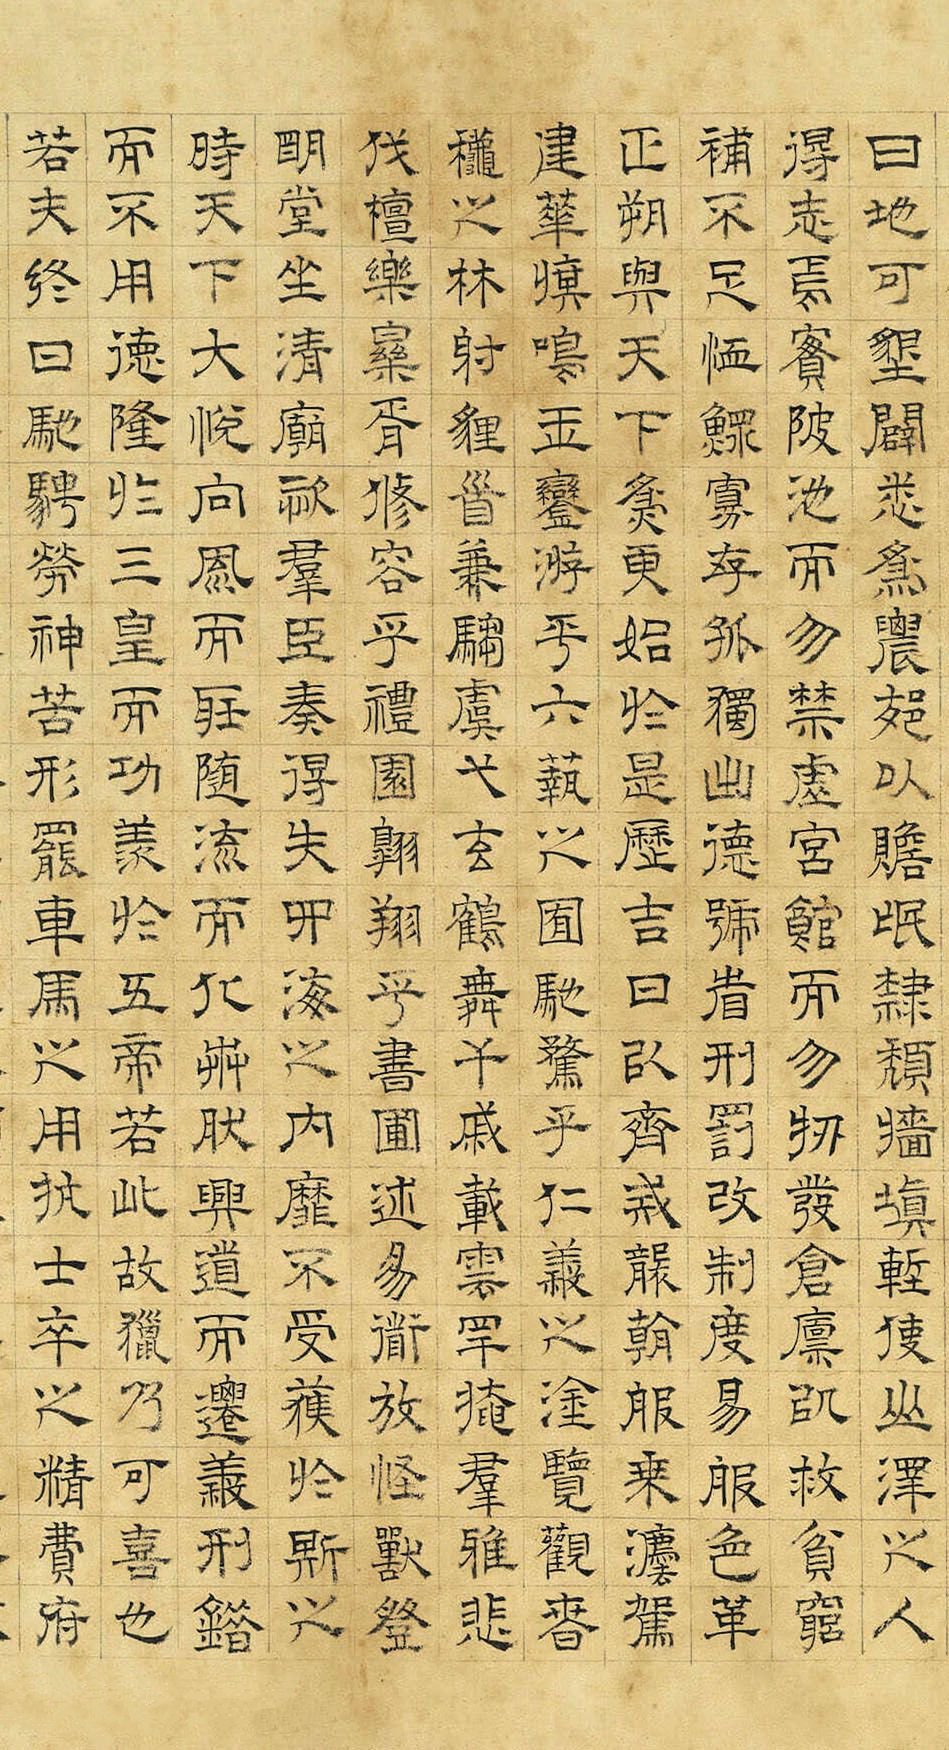 曰地可墾闢悉為農郊以贍氓隸頹牆填塹使山澤之人
得志焉實陂池而勿禁虛宮館而勿牣發倉廩以救貧窮
補不足恤鰥寡存孤獨出德號省刑罰改制度易服色革
正朔與天下為更始於是歷吉日以齊戒襲朝服乘灋駕
建華旗鳴玉鸞游乎六藝之囿馳騖乎仁義之塗覽觀春
穐之林射貍首兼騶虞弋玄鶴舞干戚載雲罕揜羣雅悲
伐檀樂樂胥修容乎禮園翱翔乎書圃述易道放怪獸登
朙堂坐清廟次羣臣奏得失四海之內靡不受獲於斯之
時天下大悅向風而聽隨流而化芔然興道而遷義刑錯
而不用德隆於三皇而功羨於五帝若此故獵乃可喜也
若夫終日馳騁勞神苦形罷車馬之用抗士卒之精費府